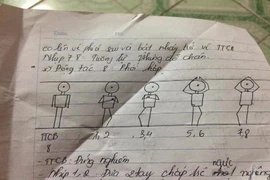 co lên về phía sau và bật nhảy hô về TTCB
Nhịp 7, 8 Tương tự nhưng đổi chân
Động tác 8 Phối hợp
TTCB 1, 2 3,4 5, 6 7,8
8
- TTCB: Đứng nghiêm
Nhịp 1, 2 Đưa 2 tay chắp
ngực